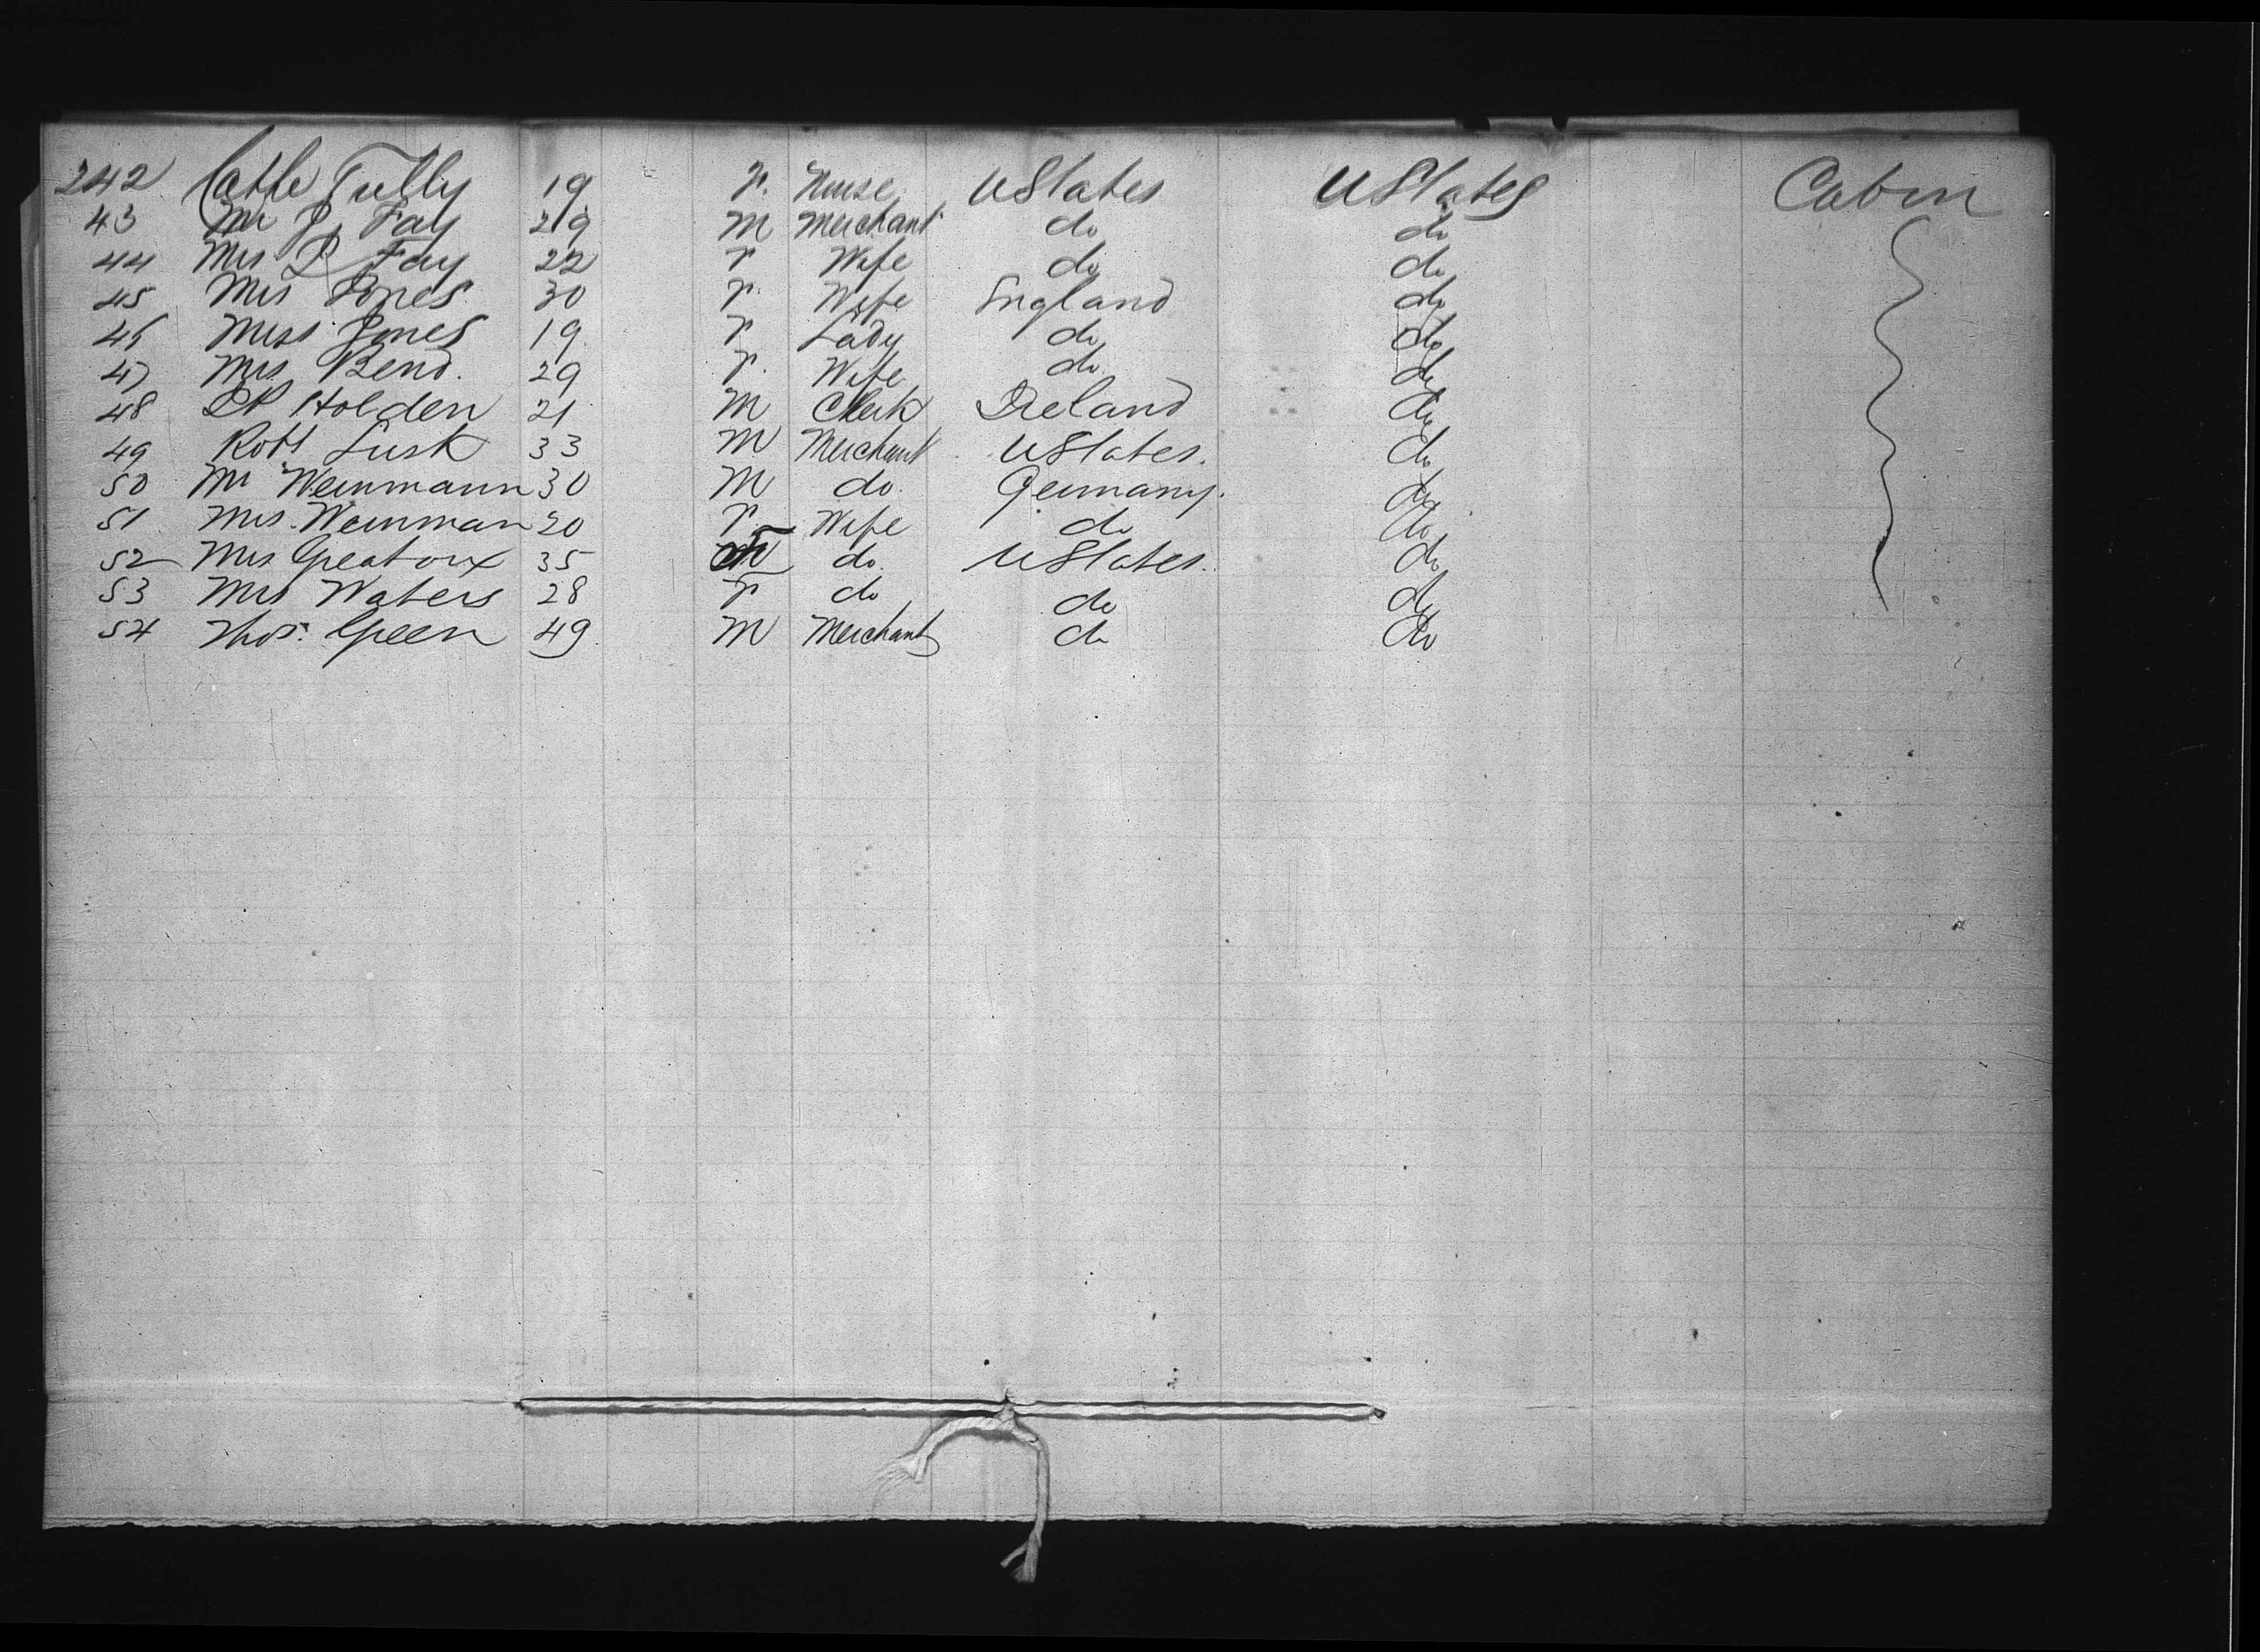 242 Cathe Tully 19 F. Nurse UStates UStates Cabin
43 Mr P. Fay 29 M Merchant do do
44 Mrs P Fay 22 F Wife do do
45 Mrs Jones 30 F. Wife England do
46 Miss Jones 19 F Lady do do
47 Mrs Bend. 29 F. Wife do do
48 Holden 21 M Clerk Ireland do
49 Robt Lusk 33 M Merchant UStates. do
50 Mr Weinmann 30 M do. Germany. do
51 Mrs. Weinman 20 F Wife do do
52 Mrs Greatorix 35 F do. UStates. do
53 Mrs Waters 28 F do do do
54 Thos. Green 49 M Merchant do do